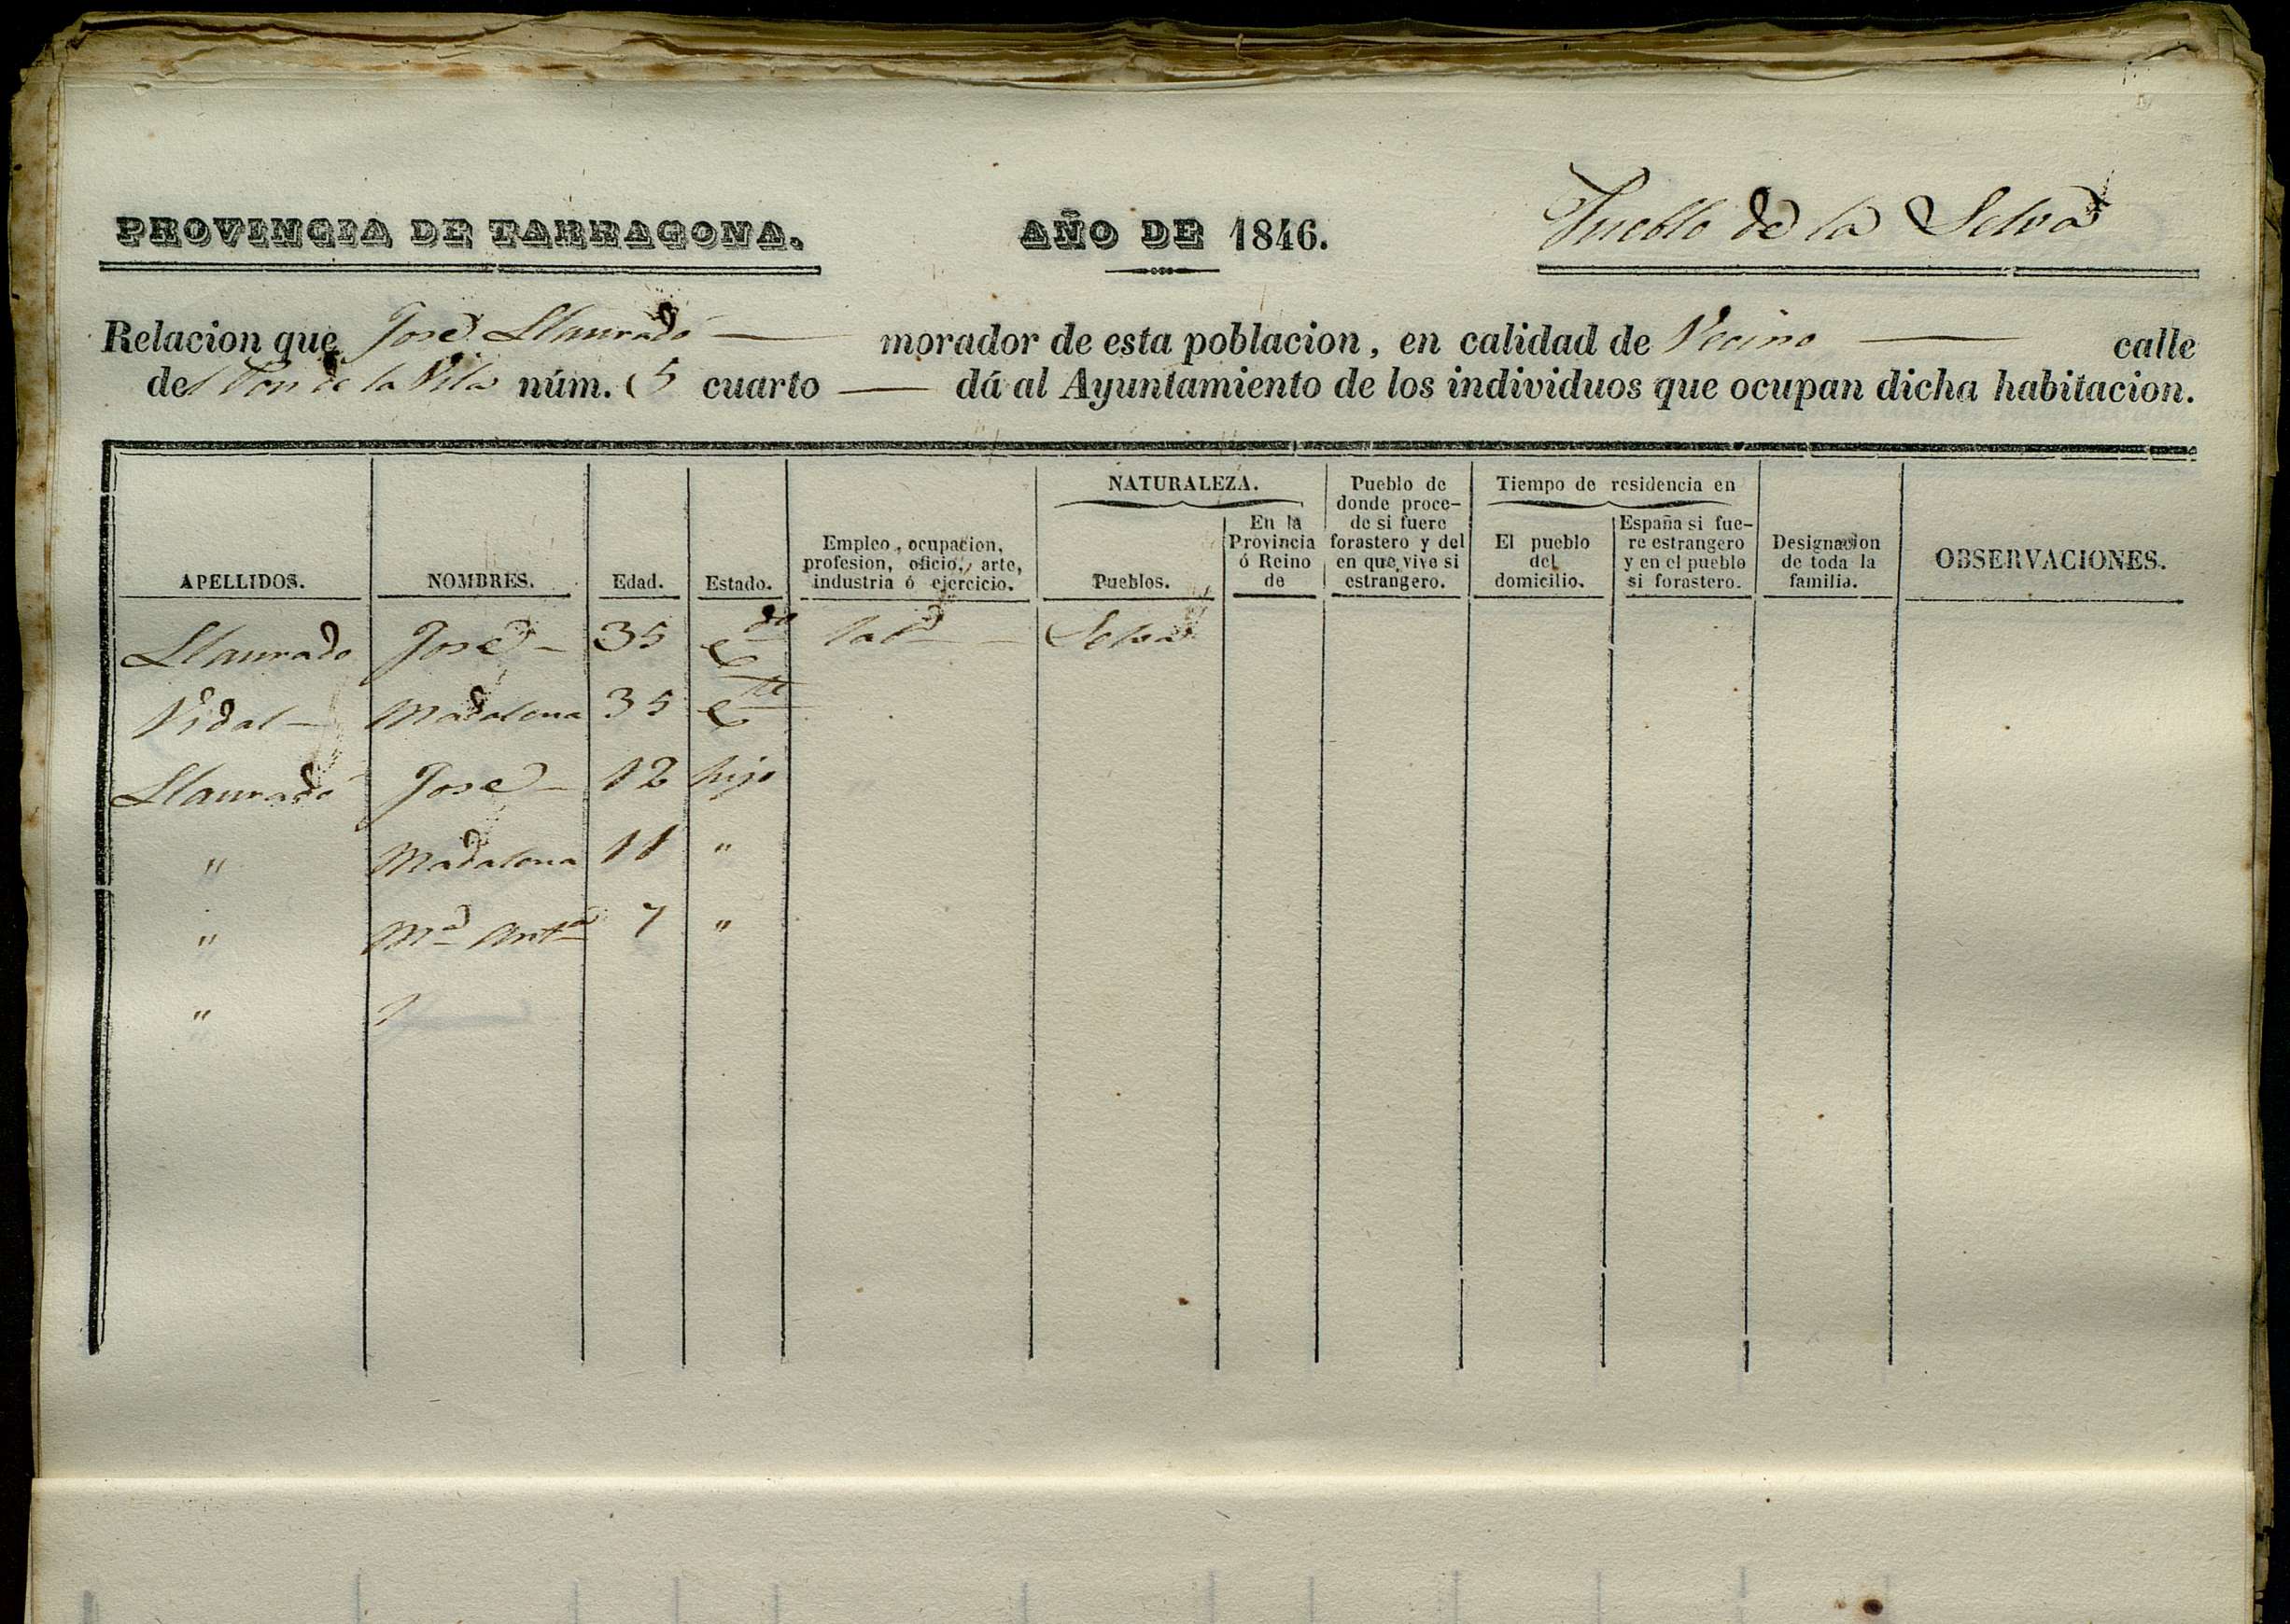 PROVINCIA DE TARRAGONA. AÑO DE 1846. Pueblo de la Selva
Relacion que José Llauradó — morador de esta poblacion, en calidad de Vecino — calle
del Pou de la Vila núm. 5 cuarto — dá al Ayuntamiento de los individuos que ocupan dicha habitacion.
APELLIDOS.
NOMBRES.
Edad.
Estado.
Empleo, ocupacion,
profesion, oficio, arte,
industria ó ejercicio.
NATURALEZA.
Pueblos.
En la
Provincia
ó Reino
de
Pueblo de
donde proce-
de si fuere
forastero y del
en que vive si
estrangero.
Tiempo de residencia en
El pueblo
del
domicilio.
España si fue-
re estrangero
y en el pueblo
si forastero.
Designacion
de toda la
familia.
OBSERVACIONES.
Llaurado José - 35 Cdo Labr — Selva
Vidal - Madalena 35 Ctt
Llauradó José - 12 hijo
" Madalena 11 "
" Mª Antª 7 "
"